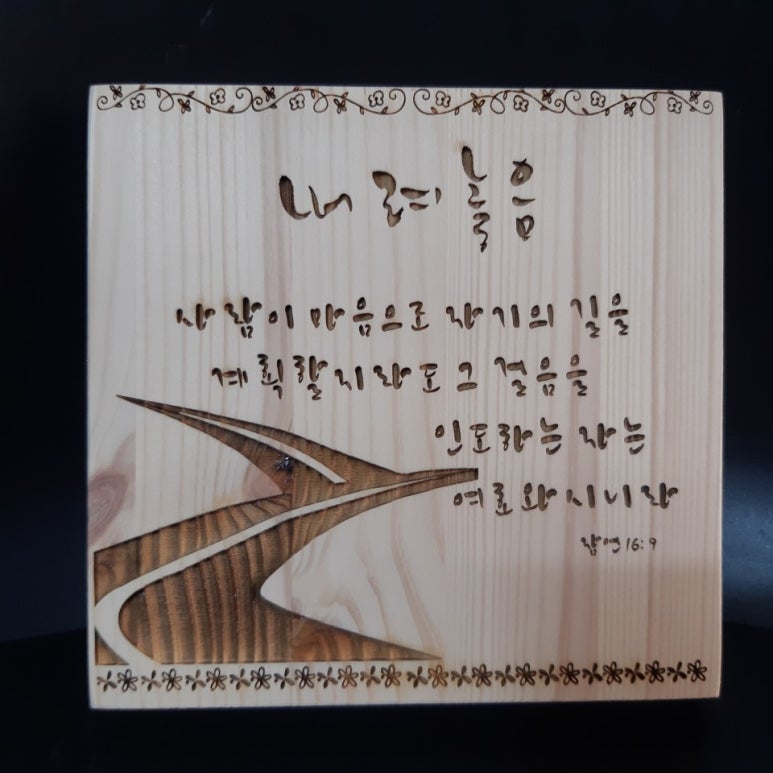 내려놓음
사람이 마음으로 자기의 길을
계획할지라도 그 걸음을
인도하는 자는
여호와시니라
잠언 16:9